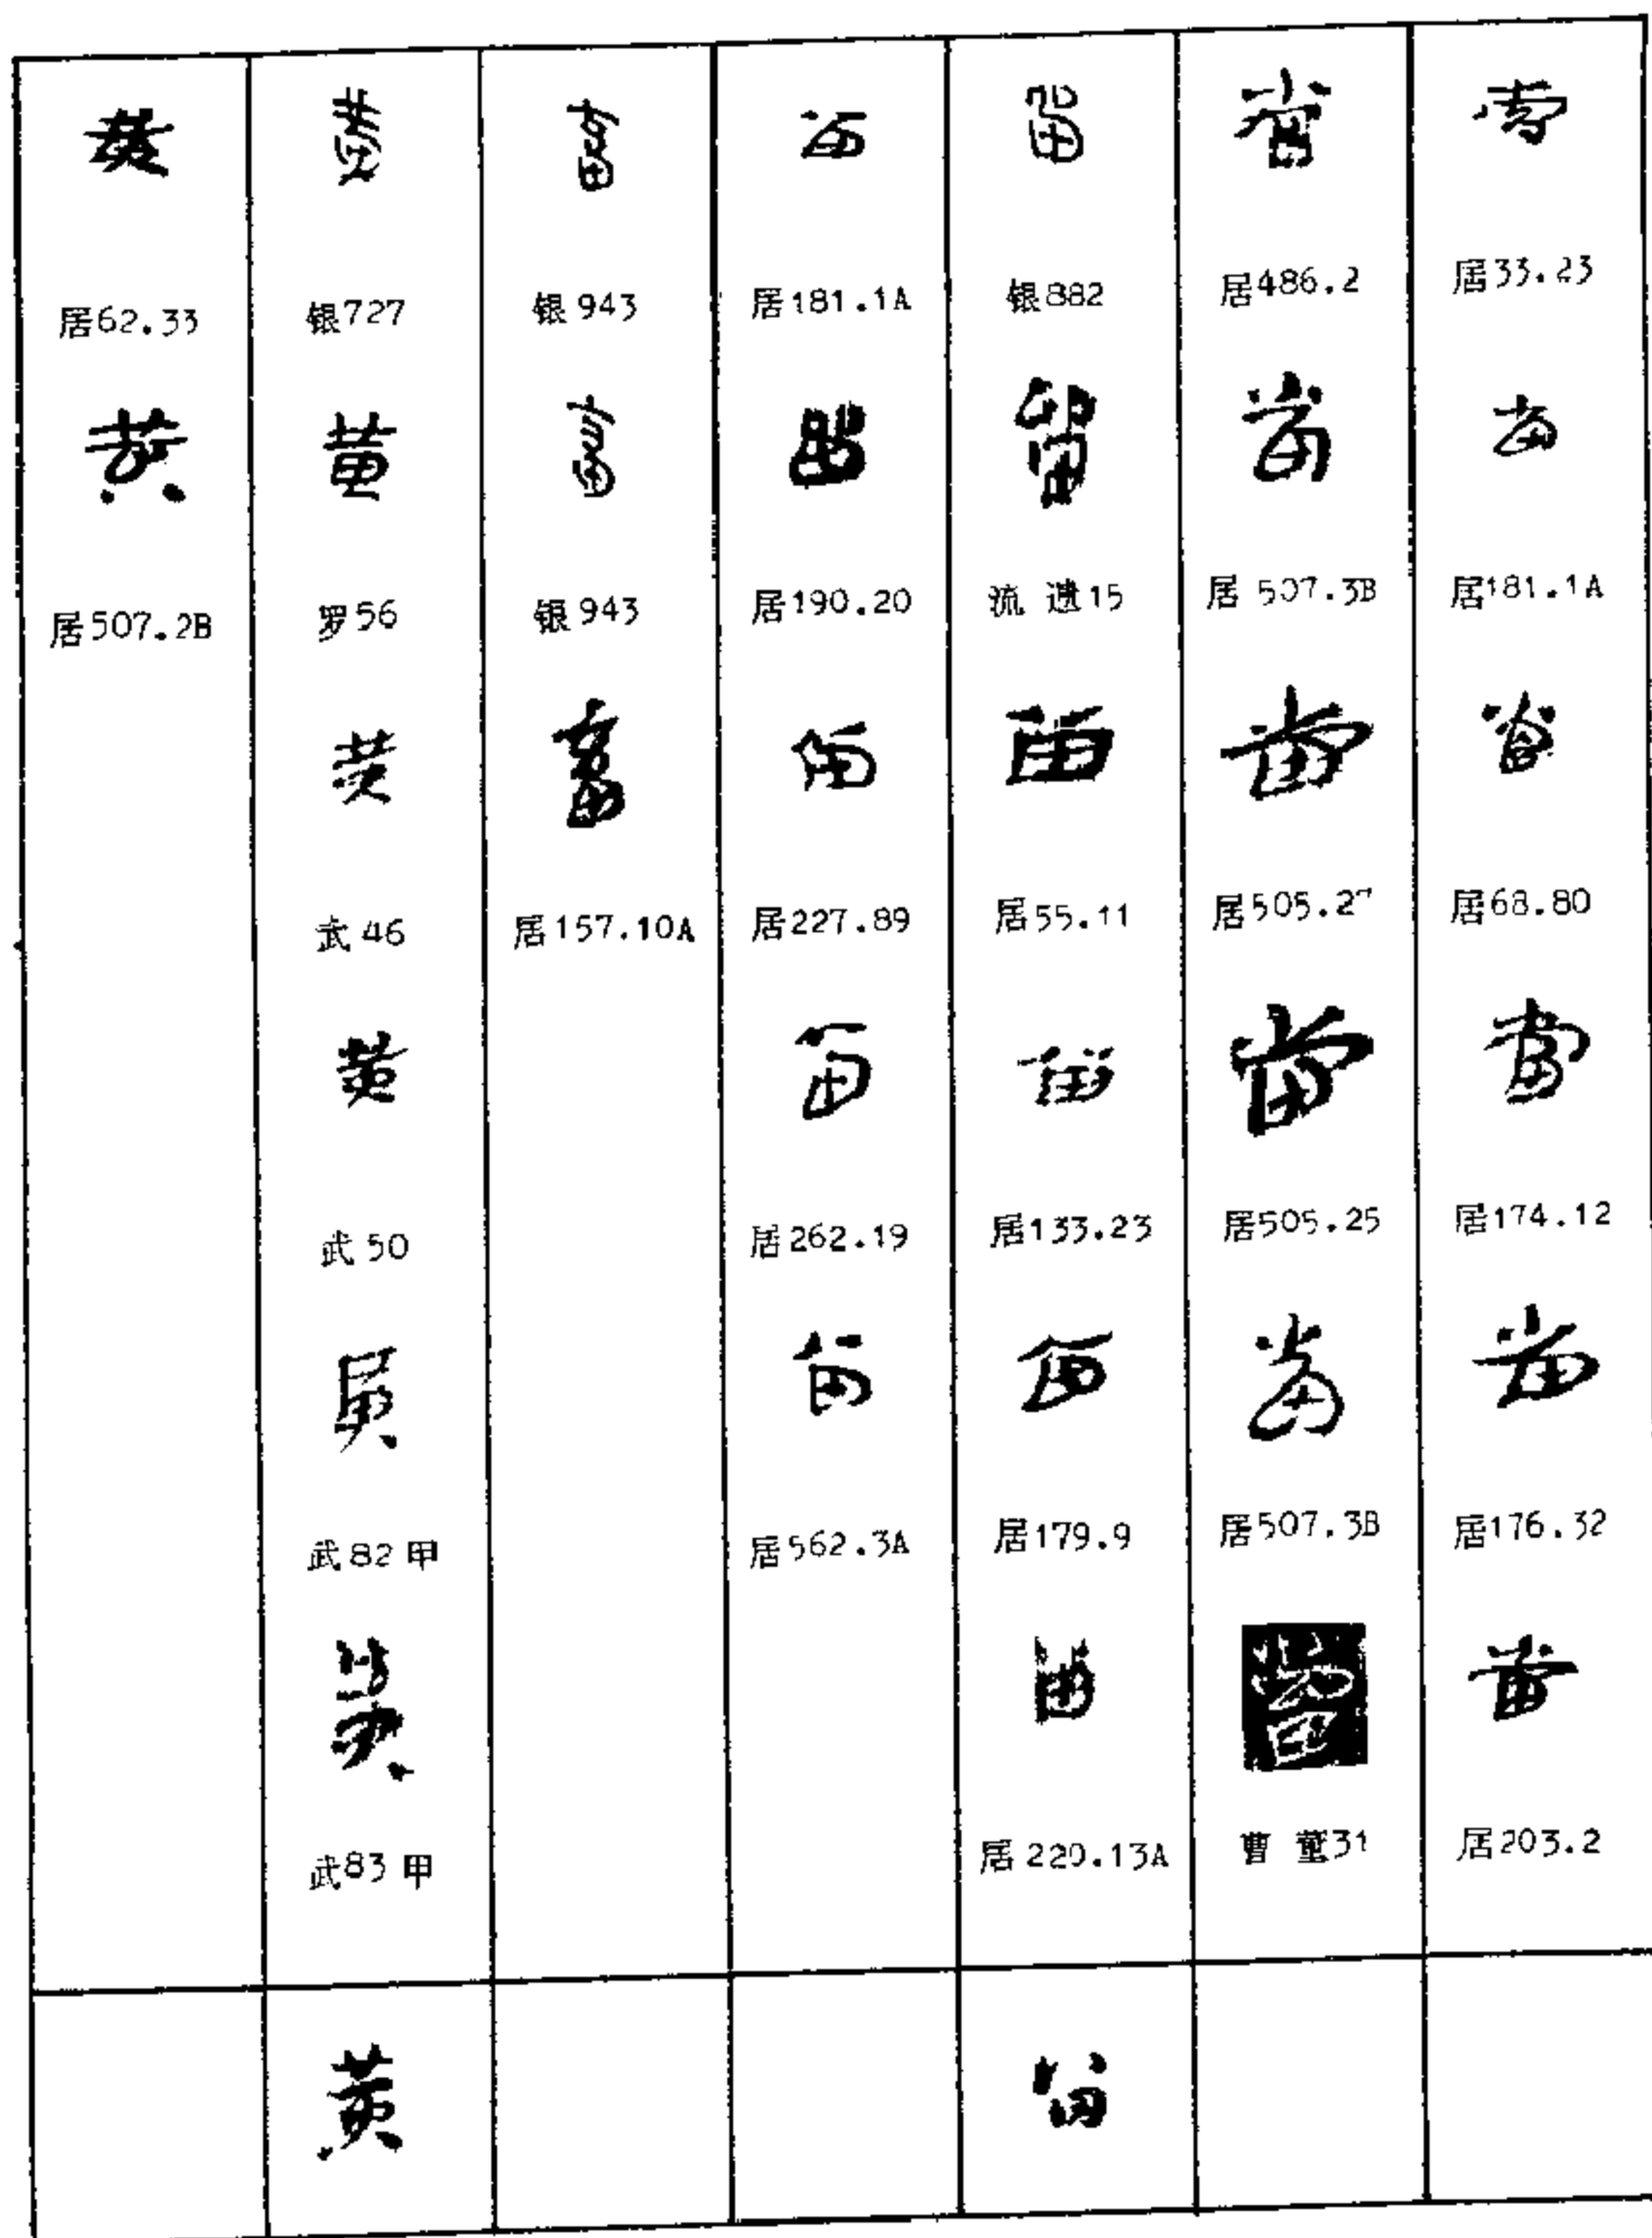 當
居33.23
當
居181.1A
當
居68.80
當
居174.12
當
居176.32
當
居203.2
當
居486.2
當
居507.3B
當
居505.2
當
居505.25
當
居507.3B
當
曹董31
留
银882
留
流遗15
留
居55.11
留
居133.23
留
居179.9
留
居220.13A
留
留
居181.1A
留
居190.20
留
居227.89
留
居262.19
留
居562.3A
畜
银943
畜
银943
畜
居157.10A
黄
银727
黄
罗56
黄
武46
黄
武50
黄
武82甲
黄
武83甲
黄
黄
居62.33
黄
居507.2B